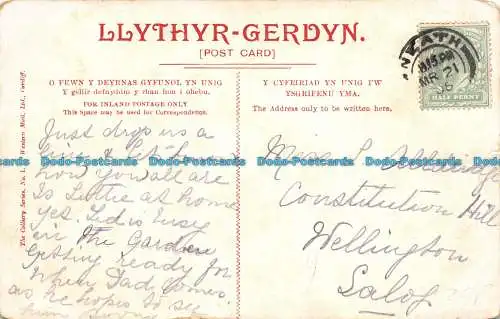 LLYTHYR-GERDYN.
[POST CARD]
O FEWN Y DEYRNAS GYFUNOL YN UNIG
Y gellir defnyddio y rhan hon i ohebu.
FOR INLAND POSTAGE ONLY
This Space may be used for Correspondence.
Just drop us a
line & let
how you all are
Is Lottie at home
yet. Ted is busy
in the Garden
getting ready for
when Dad comes.
as he hopes to see
him soon
Y CYFEIRIAD YN UNIG I'W
YSGRIFENU YMA.
The Address only to be written here.
Miss L
Constitution Hill
Wellington
Salop
NEATH
MR 21
HALF PENNY
The Gallery Series, No. 1. Western Mail, Ltd., Cardiff.
Dodo-Postcards Dodo-Postcards Dodo-Postcards Dodo-Postcards Dodo-Postcards